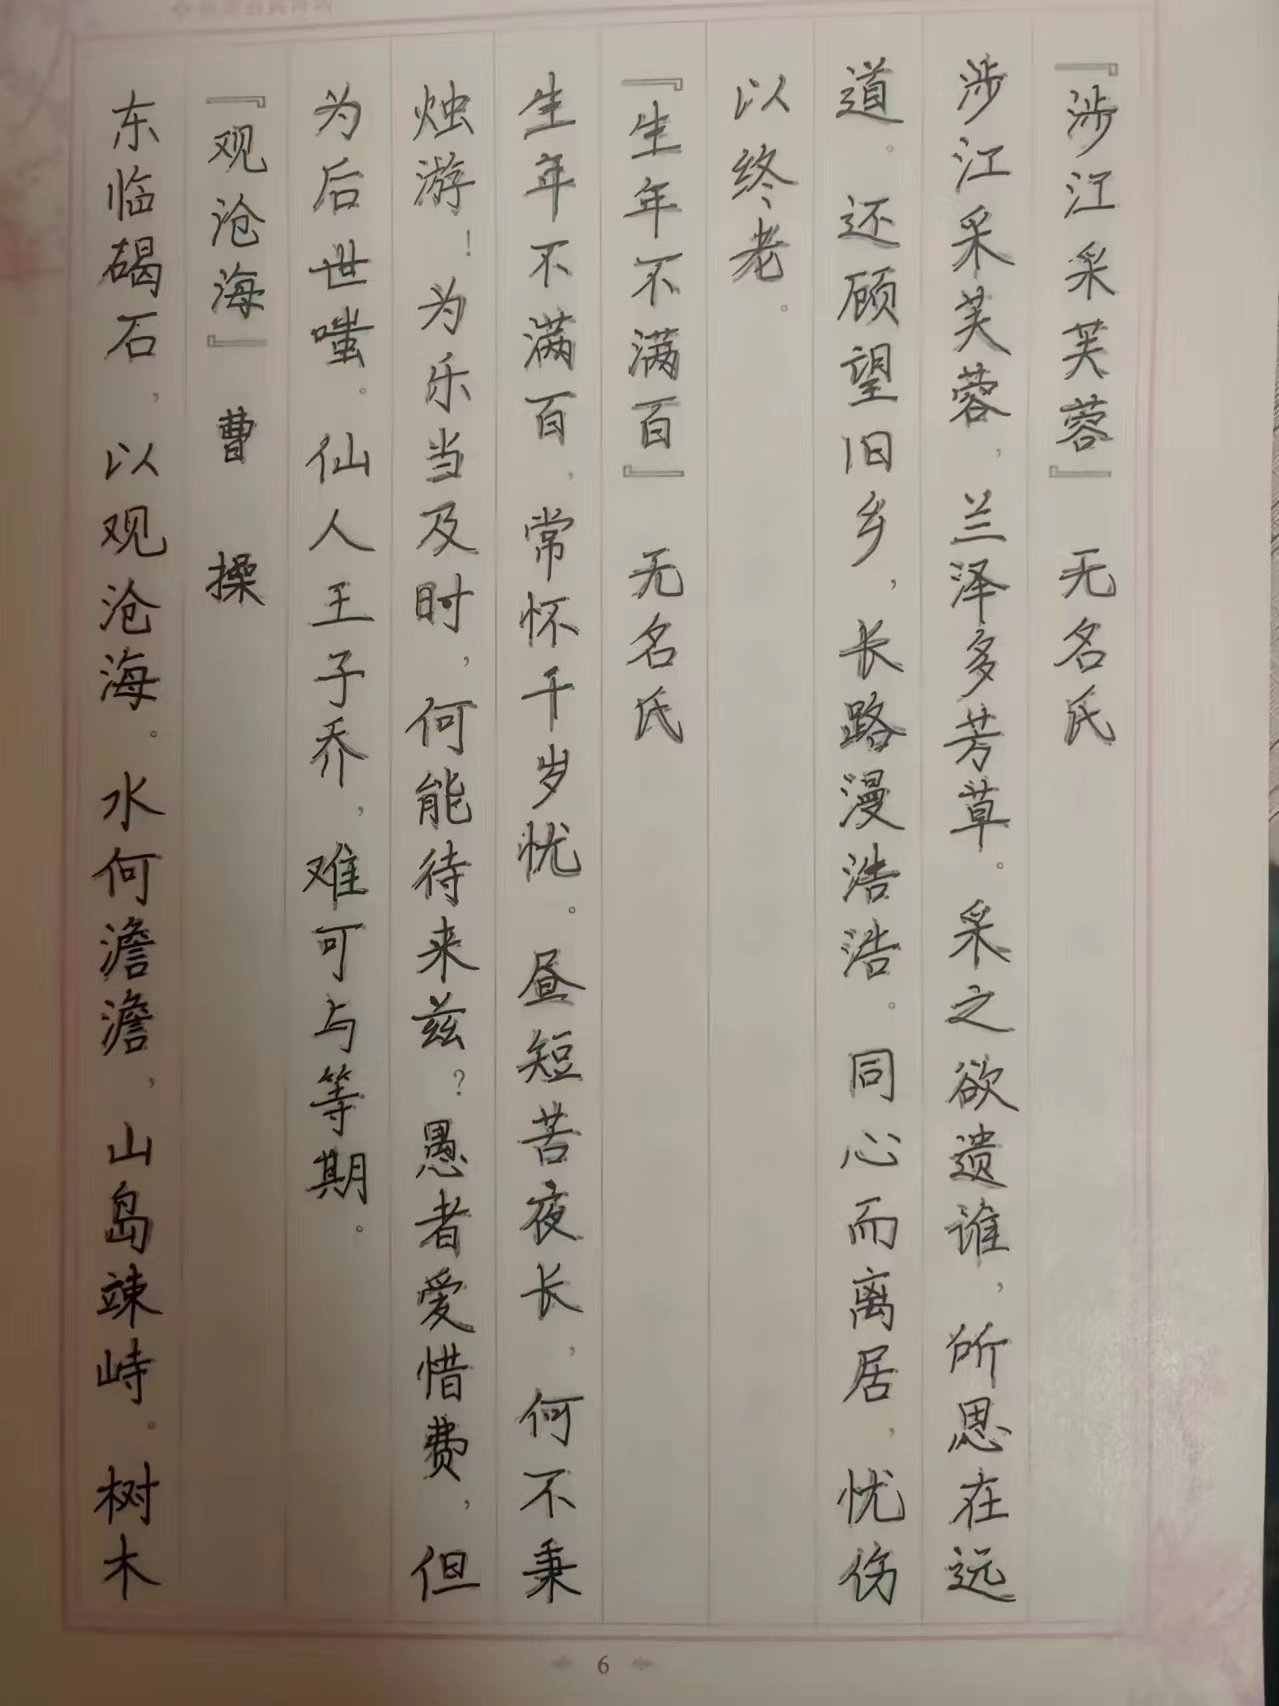 『涉江采芙蓉』 无名氏
涉江采芙蓉，兰泽多芳草。采之欲遗谁，所思在远
道。还顾望旧乡，长路漫浩浩。同心而离居，忧伤
以终老。
『生年不满百』 无名氏
生年不满百，常怀千岁忧。昼短苦夜长，何不秉
烛游！为乐当及时，何能待来兹？愚者爱惜费，但
为后世嗤。仙人王子乔，难可与等期。
『观沧海』 曹 操
东临碣石，以观沧海。水何澹澹，山岛竦峙。树木
6